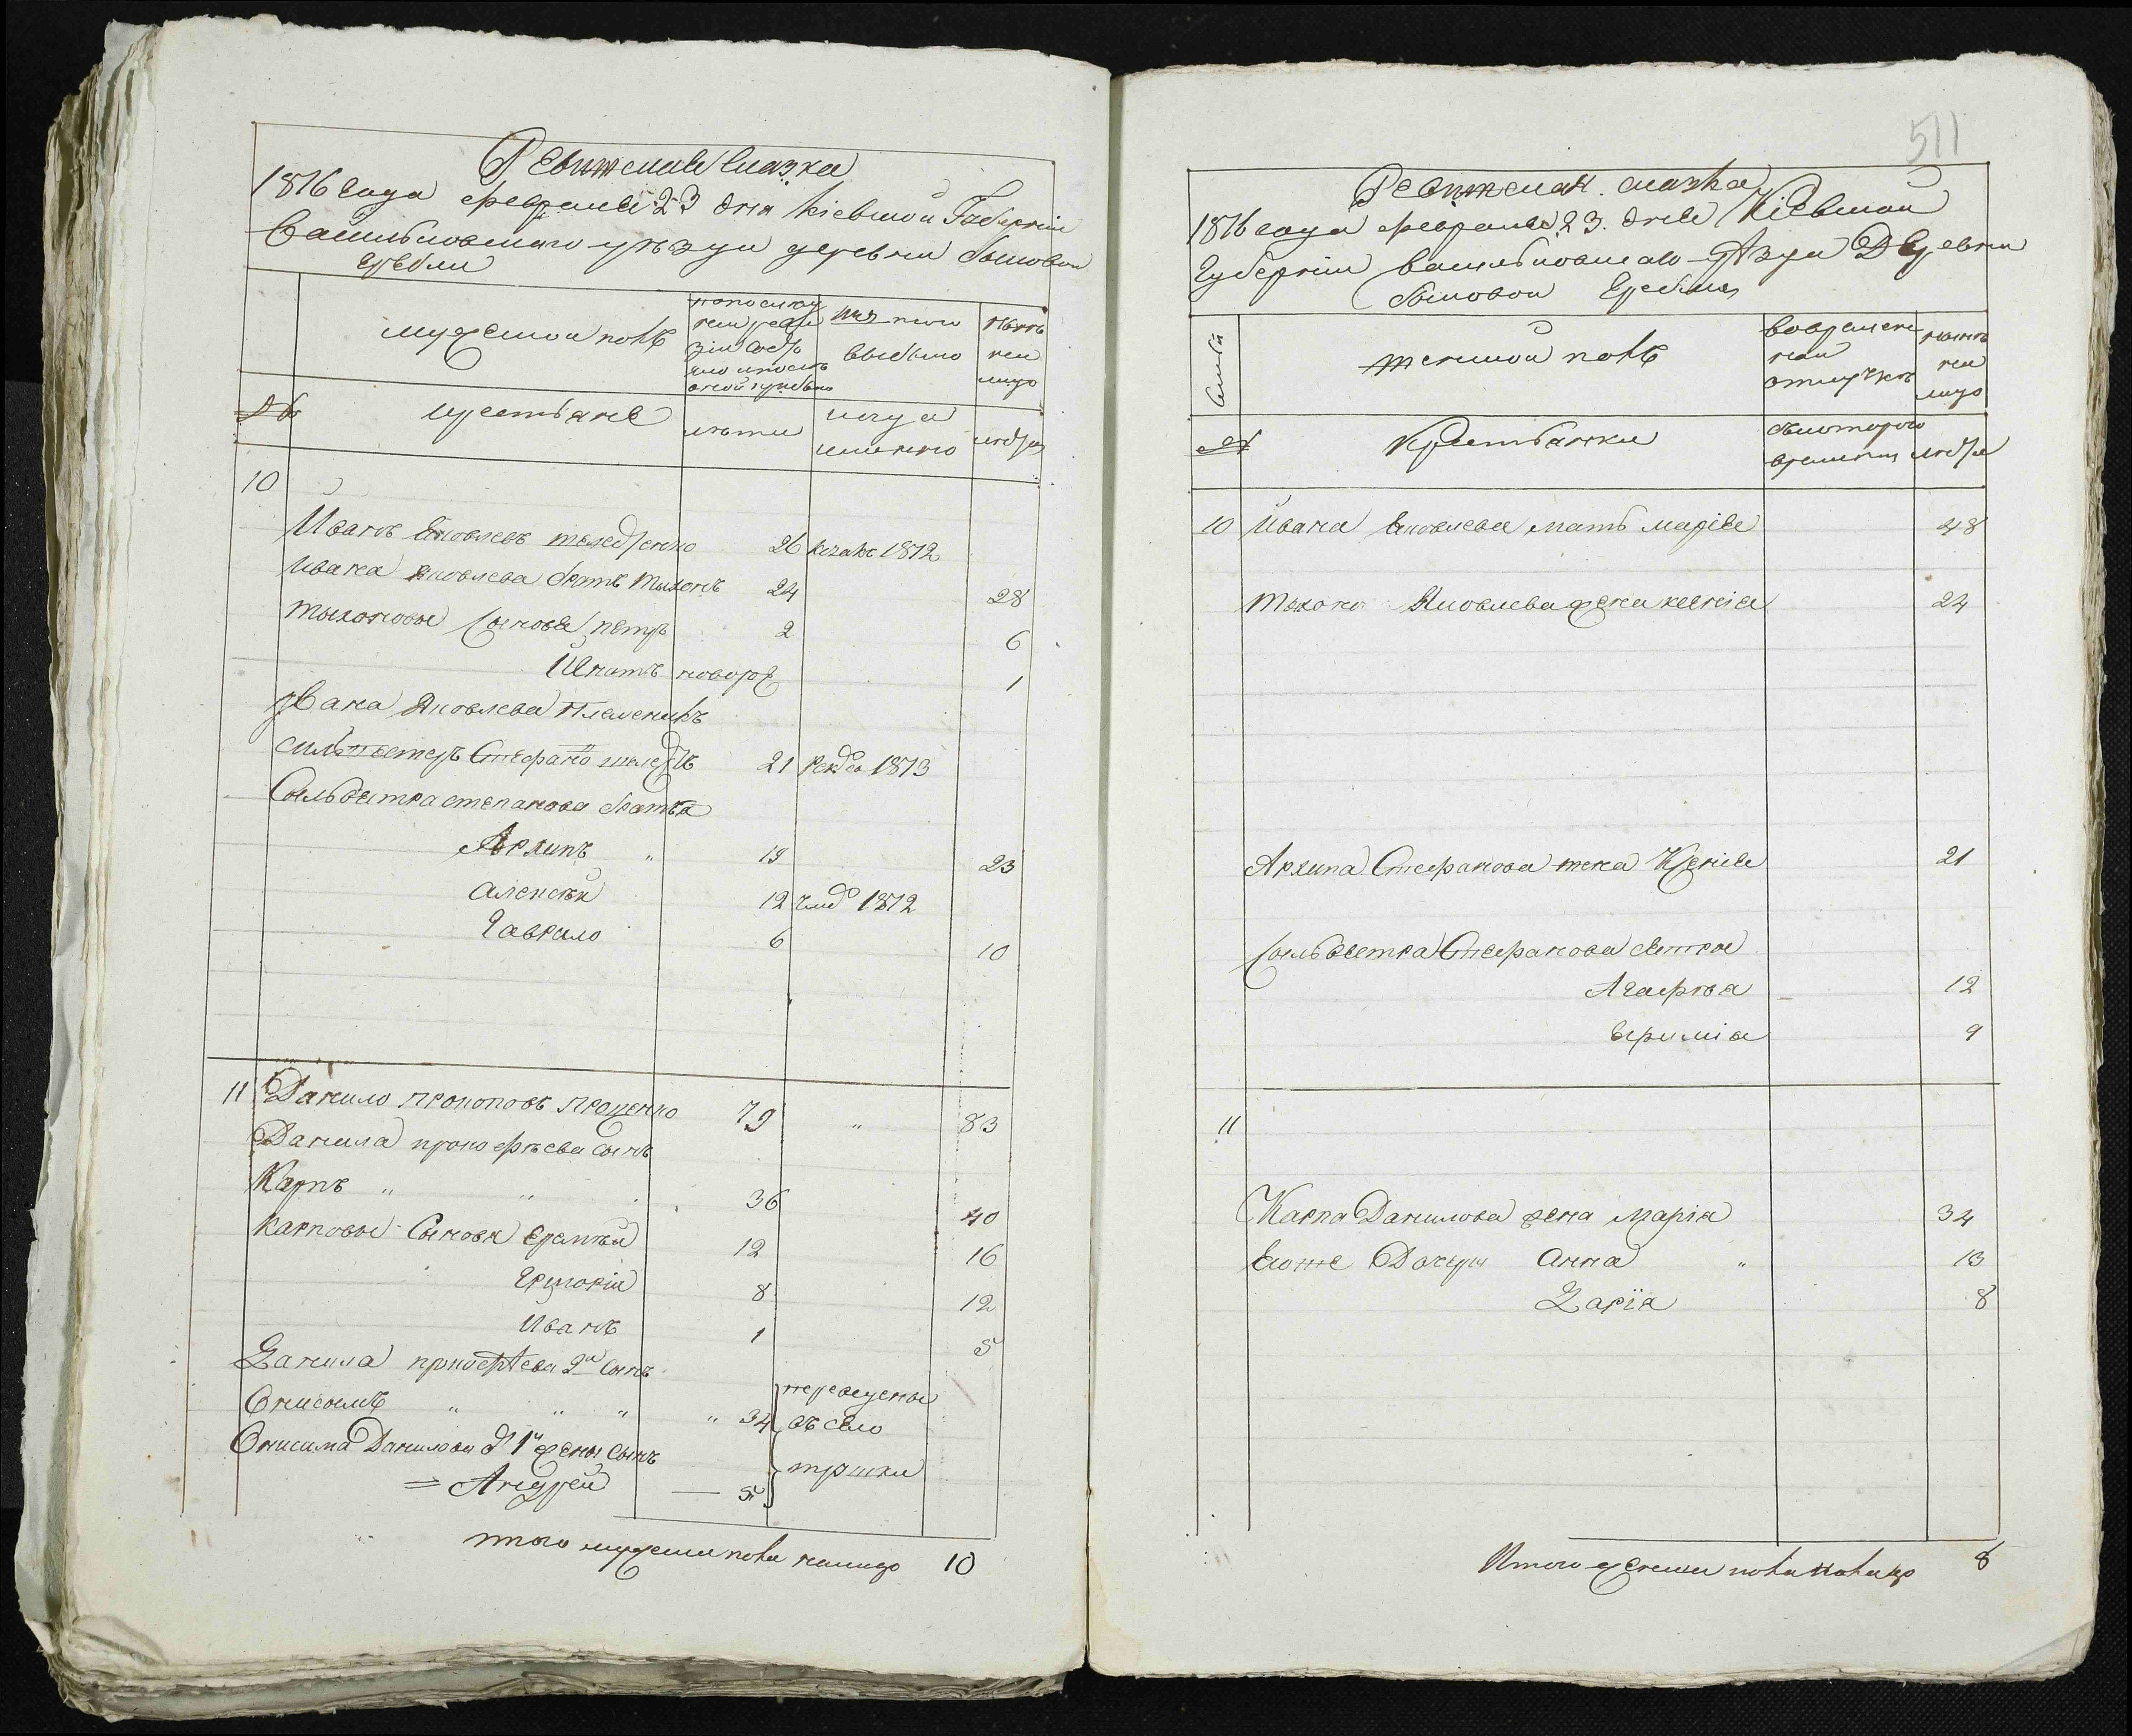 Ревижская сказка
1816 года февраля 23 дня Кіевской Губерніи
Васильковского уѣзда деревни
гребли
мужеской полъ
изъ того выбыло
нынѣ на лицо
№
крестьяне
лѣты
когда именно
лѣта
10
Иванъ Яковлевъ 26 1812
Ивана Яковлева братъ Тихонъ 24 28
Тихоновы сыновья Петръ 2 6
Игнатъ новорож 1
Ивана Яковлева племеникъ
Сильвестеръ Стефано 21 1813
Сильвестра степанова братья
Архипъ " 19 23
Алексѣй 12 1812
Гаврило 6 10
11 Данило прокоповъ проценко 79 " 83
Данила прокофѣева сынъ
Карпъ " " 36 40
карповы Сыновя Еремѣй 12 16
Григорій 8 12
Иванъ 1 5
Данила прокофѣева 2й сынъ
Онисимъ " " " " 34 переведены въ село
Онисима Данилова 1й жены сынъ
= Андрей — 5
итого мужеска пола налицо 10
511
Ревижская сказка
1816 года февраля 23. дня Кіевской
Губерніи васильковскаго уѣзда Деревни
Гребли
женской полъ
во временной отлучкѣ
нынѣ на лицо
№
Крестьянки
съ котораго времени
лѣта
10 Ивана Яковлева мать маріа 48
Тихона Яковлева жена ксенія 24
Архипа Стефанова жена 21
Сильвестра Стефанова сестры
Агафія 12
9
11
Карпа Данилова жена Марія 34
Егоже Дочери Анна " 13
Дарія 8
Итого женска пола налицо 8